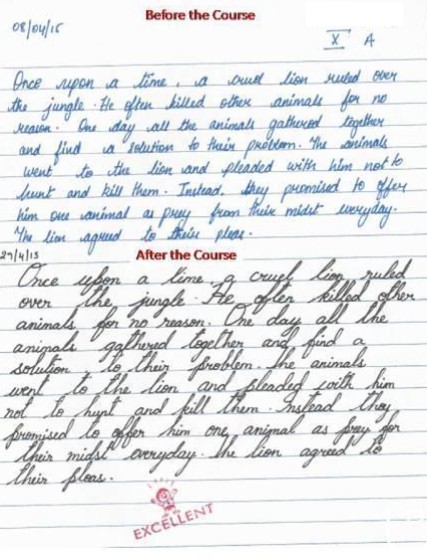 Before the Course
08/04/15
X A
Once upon a time, a cruel lion ruled over
the jungle. He often killed other animals for no
reason. One day all the animals gathered together
and find a solution to their problem. The animals
went to the lion and pleaded with him not to
hunt and kill them. Instead, they promised to offer
him one animal as prey from their midst everyday.
The lion agreed to their pleas.
29/4/15
After the Course
Once upon a time, a cruel lion ruled
over the jungle. He often killed other
animals for no reason. One day all the
animals gathered together and find a
solution to their problem. The animals
went to the lion and pleaded with him
not to hunt and kill them. Instead they
promised to offer him one animal as prey for
their midst everyday. The lion agreed to
their pleas.
EXCELLENT